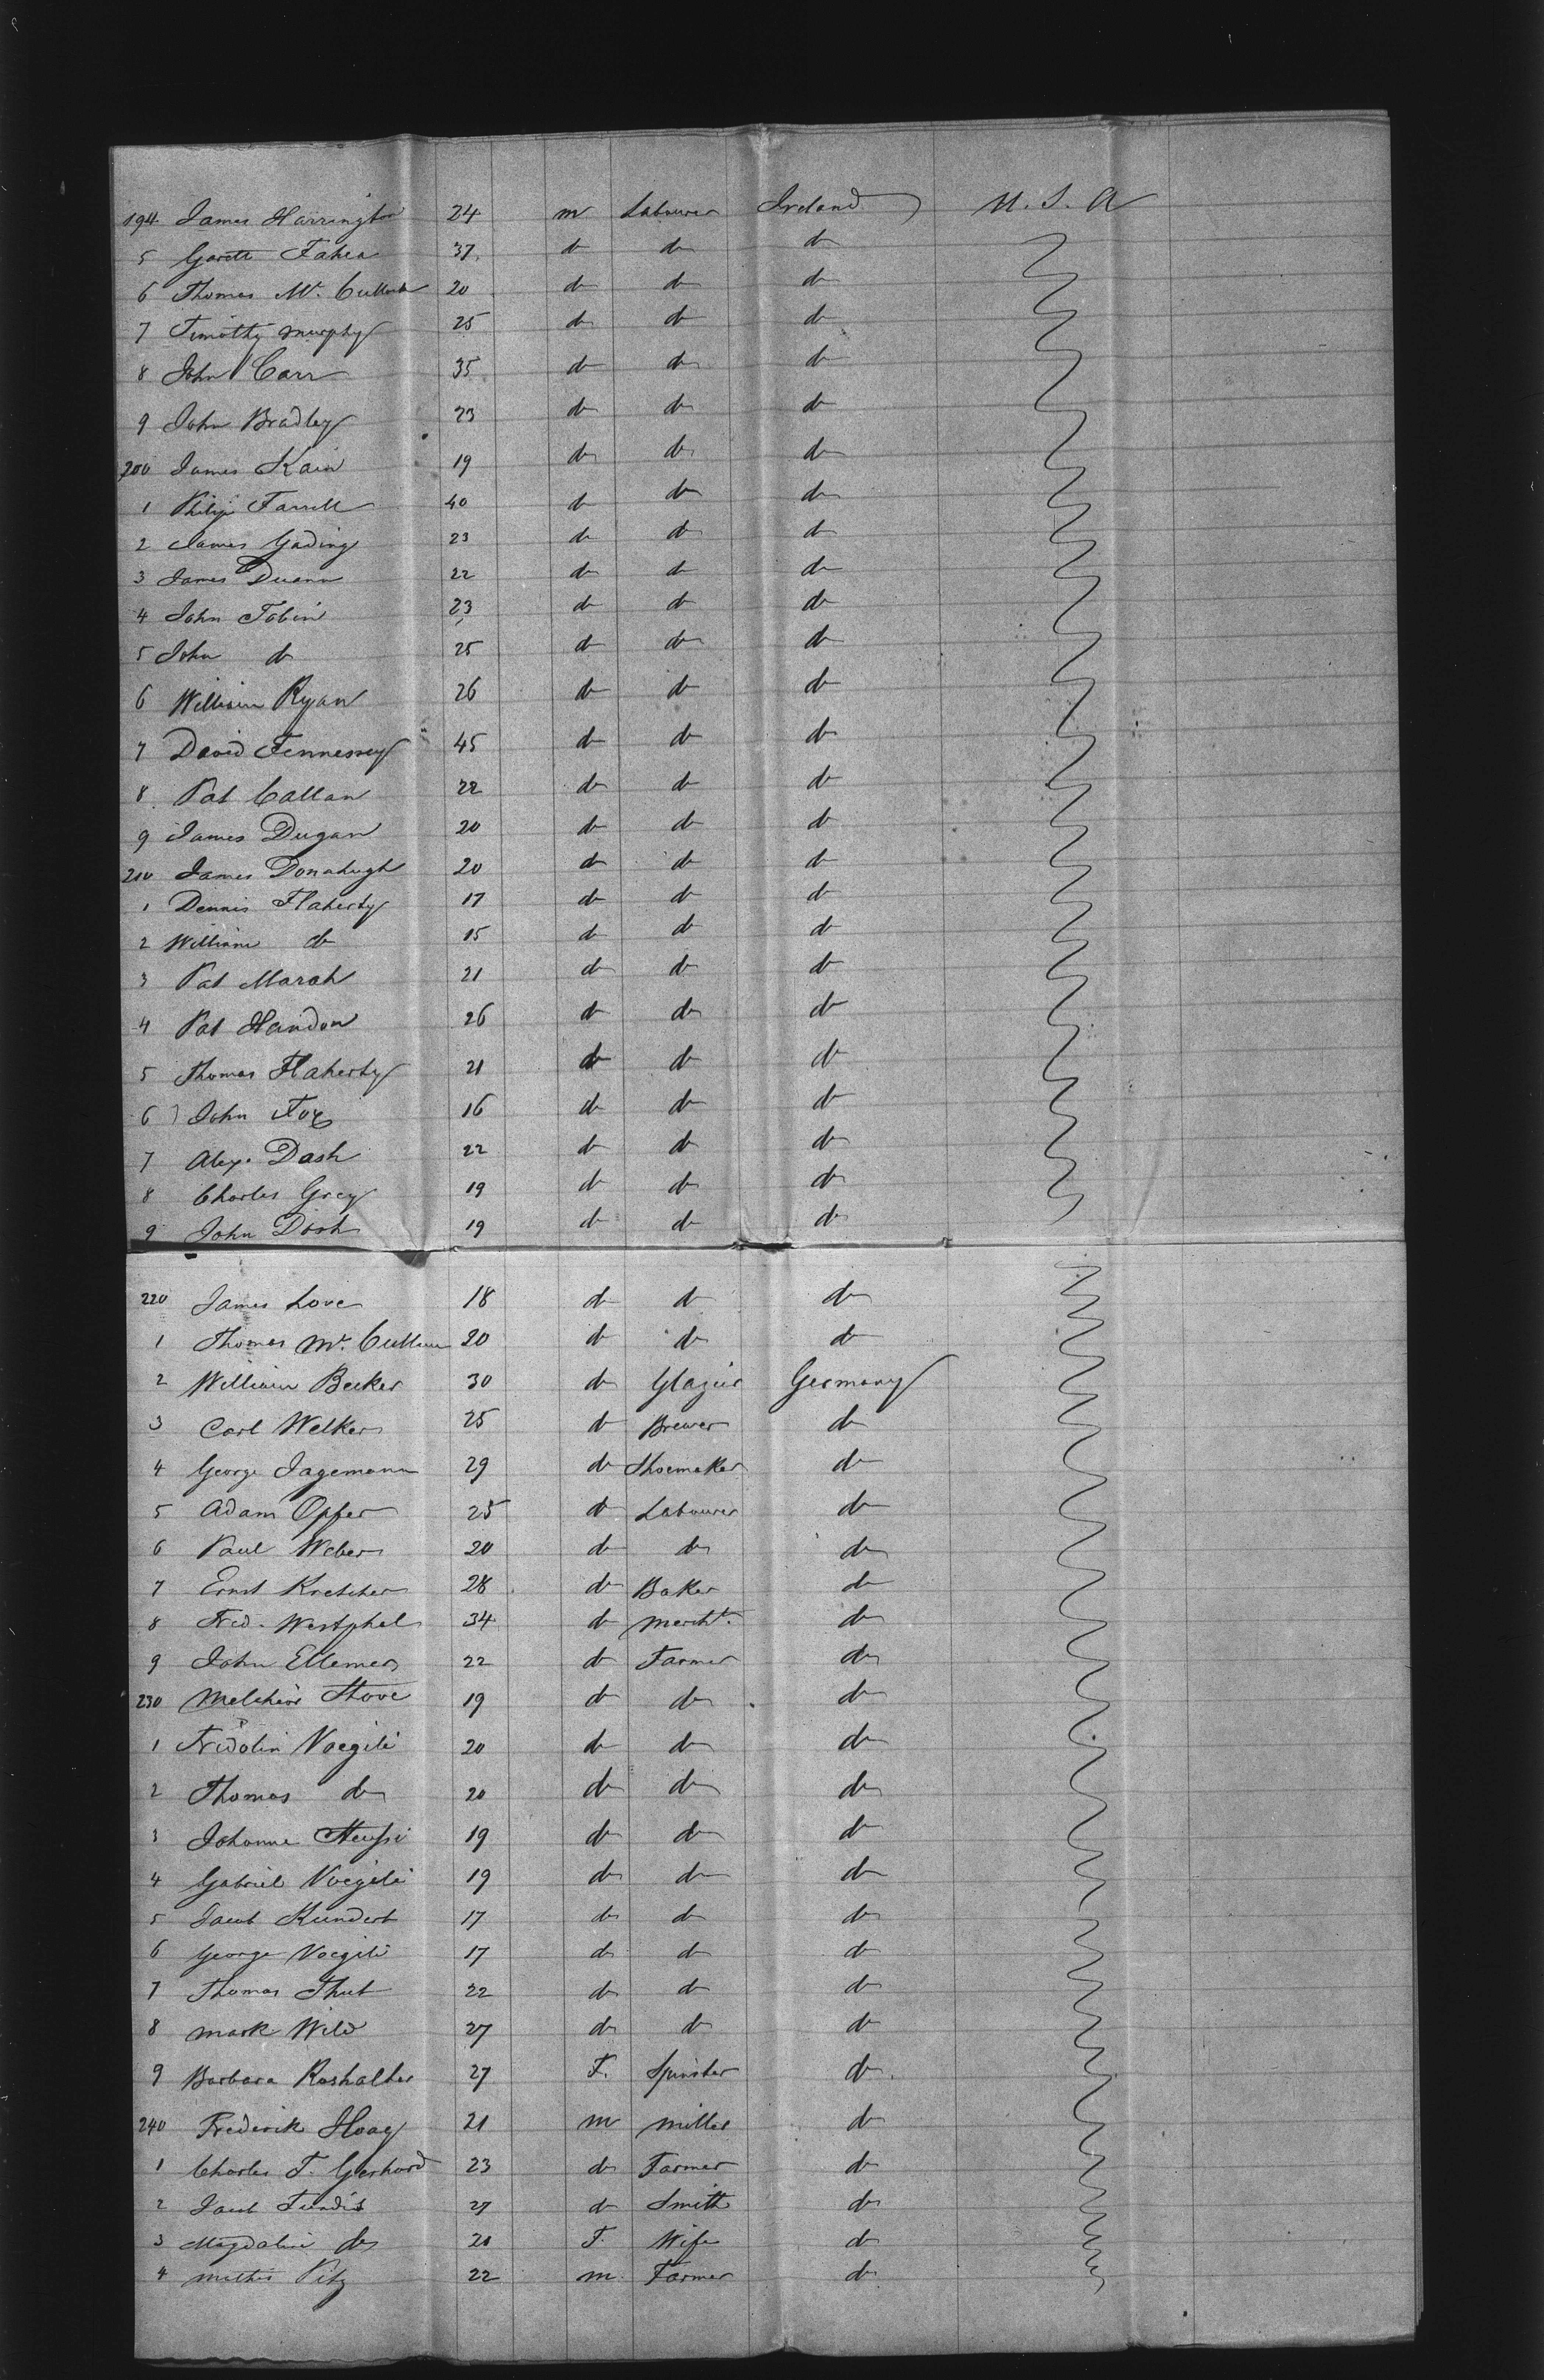 194 James Harrington 24 m Labourer Ireland U. S. A
5 Garett Fahea 37 do do do
6 Thomas Mc. Cullock 20 do do do
7 Timothy Murphy 25 do do do
8 John Carr 35 do do do
9 John Bradley 23 do do do
200 James Kain 19 do do do
1 Philip Farrell 40 do do do
2 James Gading 23 do do do
3 James Duann 22 do do do
4 John Tobin 23 do do do
5 John do 25 do do do
6 William Ryan 26 do do do
7 David Fennessey 45 do do do
8 Pat Callan 22 do do do
9 James Dugan 20 do do do
210 James Donahugh 20 do do do
1 Dennis Flaherty 17 do do do
2 William do 15 do do do
3 Pat Marah 21 do do do
4 Pat Handon 26 do do do
5 Thomas Flaherty 21 do do do
6 John Fox 16 do do do
7 Alex. Dash 22 do do do
8 Charles Grey 19 do do do
9 John Dash 19 do do do
220 James Love 18 do do do
1 Thomas Mc. Cullum 20 do do do
2 William Becker 30 do Glazier Germany
3 Carl Welker 25 do Brewer do
4 George Jagemann 29 do Shoemaker do
5 Adam Opfer 25 do Labourer do
6 Paul Weber 20 do do do
7 Ernst Kretcher 28 do Baker do
8 Fred. Westphal 34 do Mercht. do
9 John Ellemer 22 do Farmer do
230 Melchior Stove 19 do do do
1 Fridolin Voegili 20 do do do
2 Thomas do 20 do do do
3 Johanne Heussi 19 do do do
4 Gabriel Voegili 19 do do do
5 Jacob Kundert 17 do do do
6 George Voegili 17 do do do
7 Thomas Thut 22 do do do
8 Mark Wild 27 do do do
9 Barbara Roshalter 27 F. Spinster do
240 Frederik Hoag 21 m Miller do
1 Charles F. Gerhard 23 do Farmer do
2 Jacob Fundis 27 do Smith do
3 Magdalin do 20 F. Wife do
4 Mathis Pitz 22 m. Farmer do